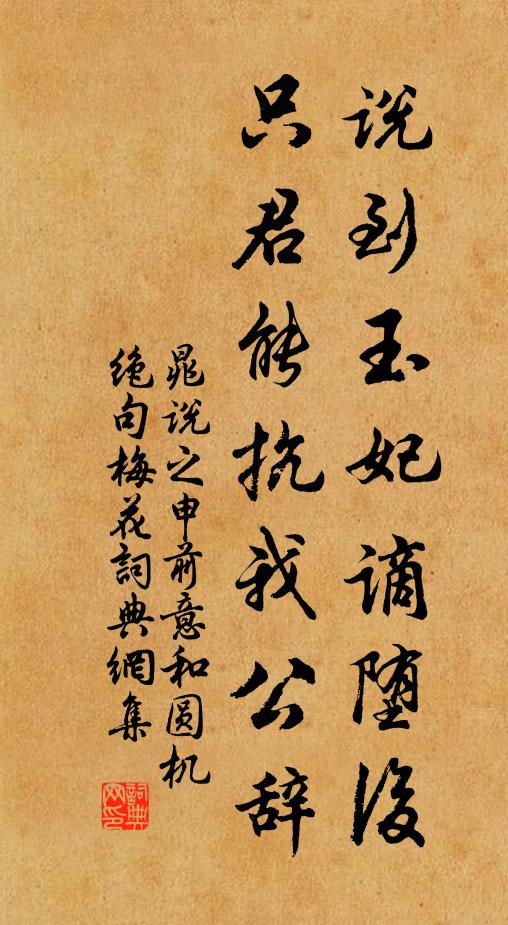 说到玉妃谪堕后
只君能抗我公辞
晁说之申前意和圆机
绝句梅花詞典網集
詞典
网印